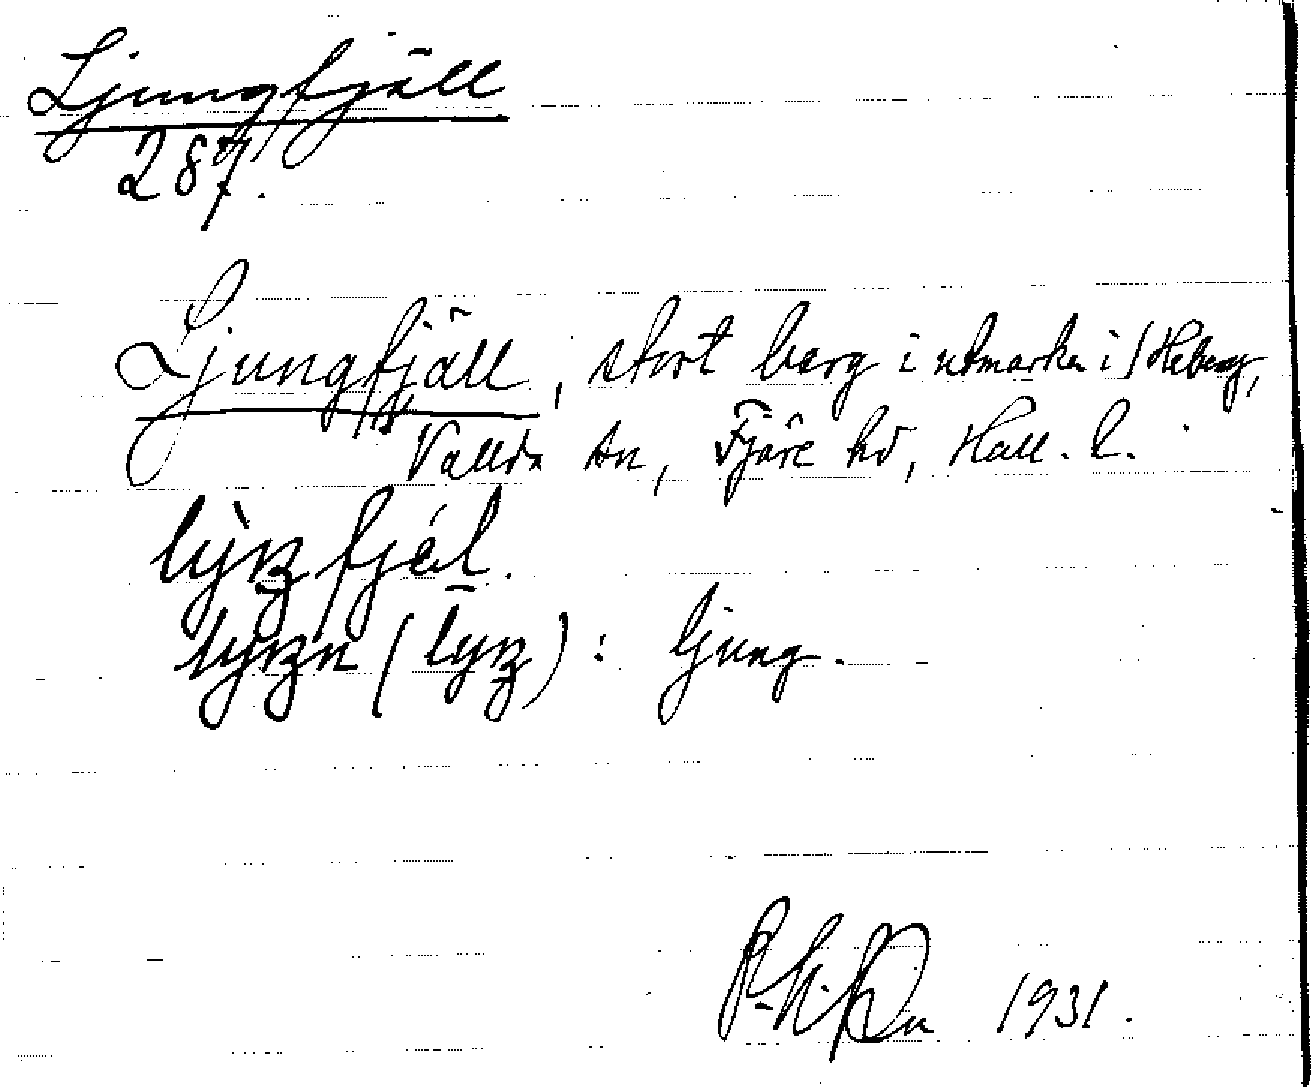 Ljungfjäll
287.
Ljungfjäll, stort berg i utmarken i Heberg,
Vallda sn, Fjäre hd, Hall. l.
ljuŋ fjäl.
(ljuŋ): ljung.
1931.